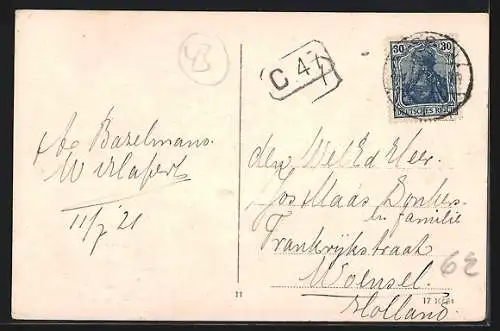 43
C 47
30 30
DEUTSCHES REICH
A. Bazelmans.
11/7 21
den Wel Ed Heer.
Jos Maas Donkers
en familie
Frankrijkstraat
Woensel.
62
Holland.
11